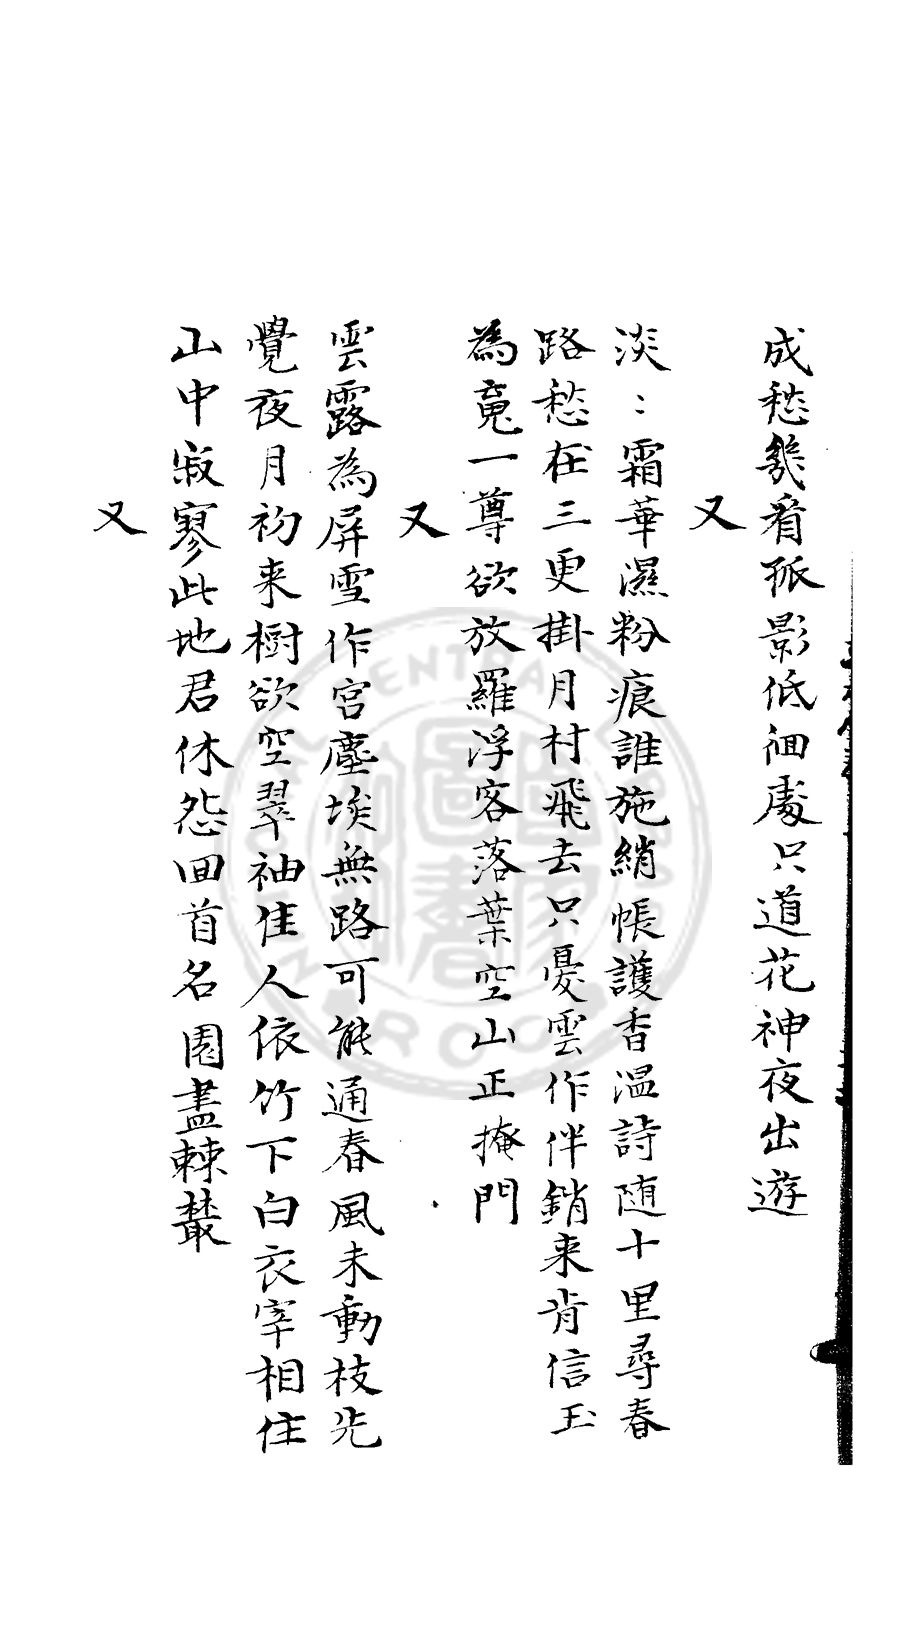 成愁幾看孤影低徊處只道花神夜出遊
又
淡：霜華濕粉痕誰施綃帳護香溫詩随十里尋春
路愁在三更掛月村飛去只憂雲作伴銷来肯信玉
為䰟一尊欲放羅浮客落葉空山正掩門
又
雲霧為屏雪作宮塵埃無路可能通春風未動枝先
覺夜月初来樹欲空翠袖佳人依竹下白衣宰相住
山中寂寥此地君休怨回首名園盡棘叢
又